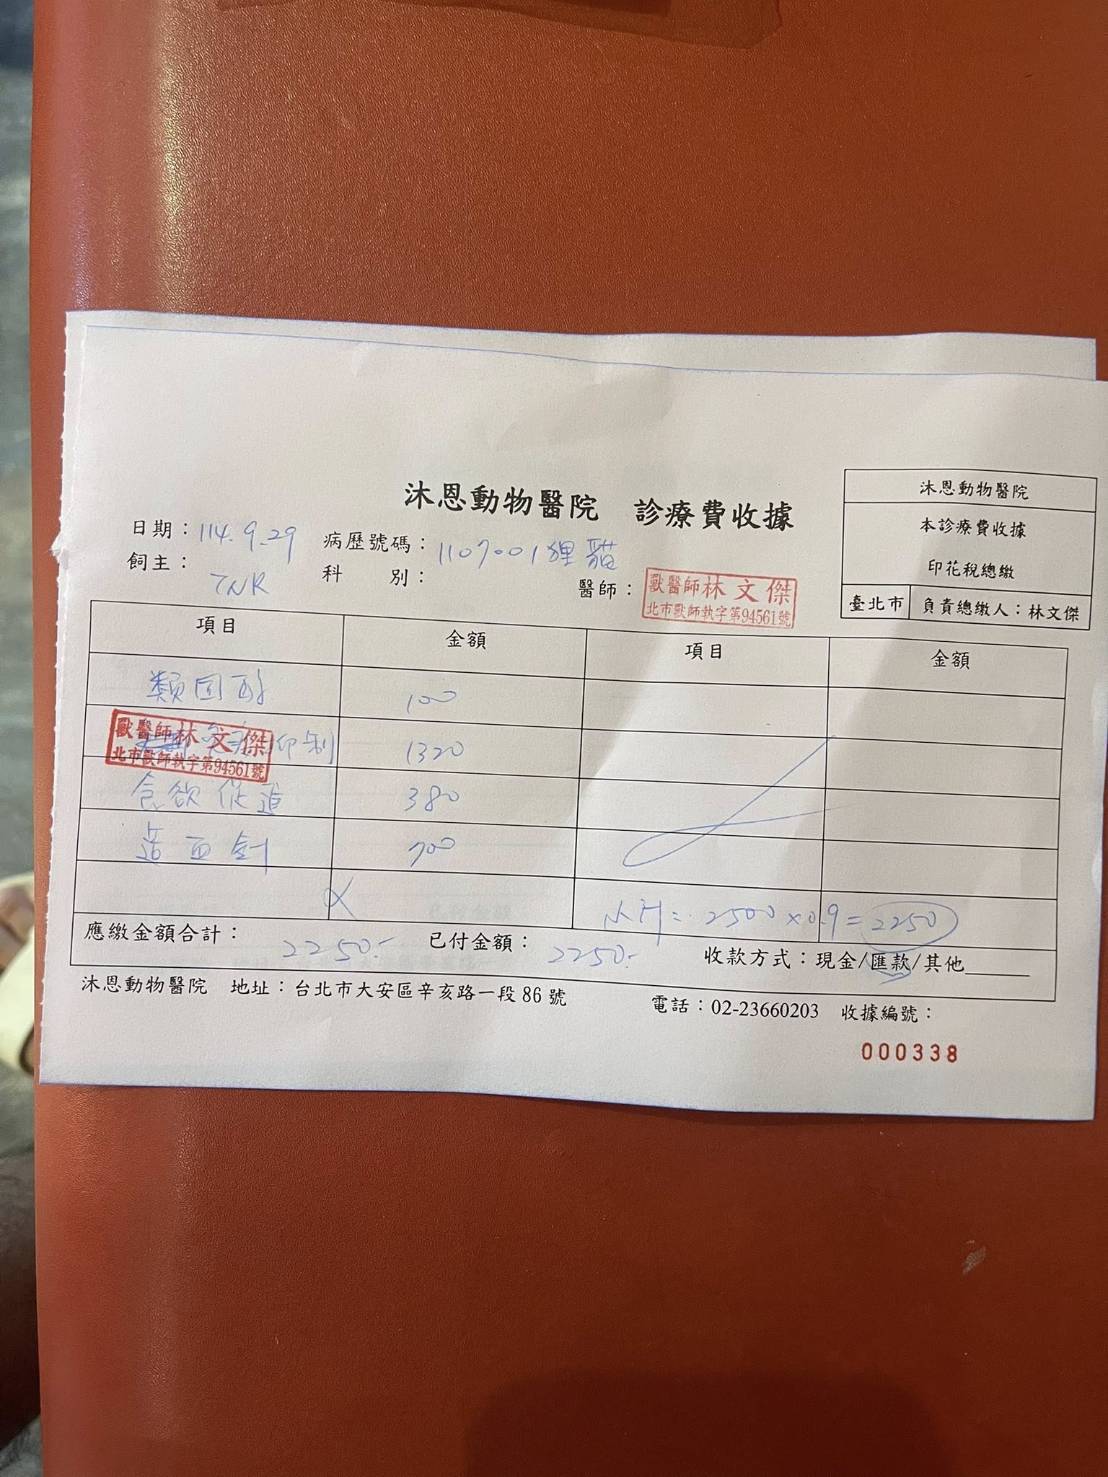 沐恩動物醫院 診療費收據
沐恩動物醫院
本診療費收據
印花稅總繳
臺北市 負責總繳人：林文傑
日期：114.9.29 病歷號碼：1107001狸貓
飼主：TNR 科 別： 醫師：
獸醫師林文傑
北市獸師執字第94561號
項目 金額 項目 金額
類固醇 100
獸醫師林文傑
北市獸師執字第94561號
抑制 1320
食欲促進 380
造血針 700
小計=2500×0.9=2250
應繳金額合計：2250.- 已付金額：2250.- 收款方式：現金/匯款/其他
沐恩動物醫院 地址：台北市大安區辛亥路一段86號 電話：02-23660203 收據編號：
000338